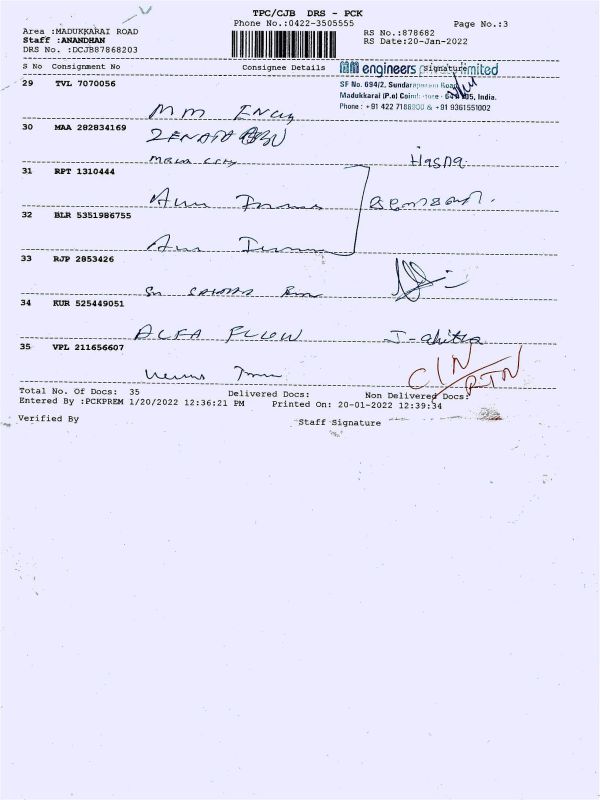 TPC/CJB DRS - PCK
Phone No.:0422-3505555 Page No.:3
Area :MADUKKARAI ROAD RS No.:878682
Staff :ANANDHAN RS Date:20-Jan-2022
DRS No. :DCJB87868203
S No Consignment No Consignee Details Signature
MM engineers private limited
29 TVL 7070056 SF No. 694/2, Sundarapuram Road
Madukkarai (P.o) Coimbatore - 641 105, India.
Phone : +91 422 7186900 & +91 9361551002
MM Eng
30 MAA 282834169
Hasna
31 RPT 1310444
32 BLR 5351986755
33 RJP 2853426
34 KUR 525449051
ALFA FLOW
35 VPL 211656607
CIN
RTN
Total No. Of Docs: 35 Delivered Docs: Non Delivered Docs:
Entered By :PCKPREM 1/20/2022 12:36:21 PM Printed On: 20-01-2022 12:39:34
Verified By Staff Signature